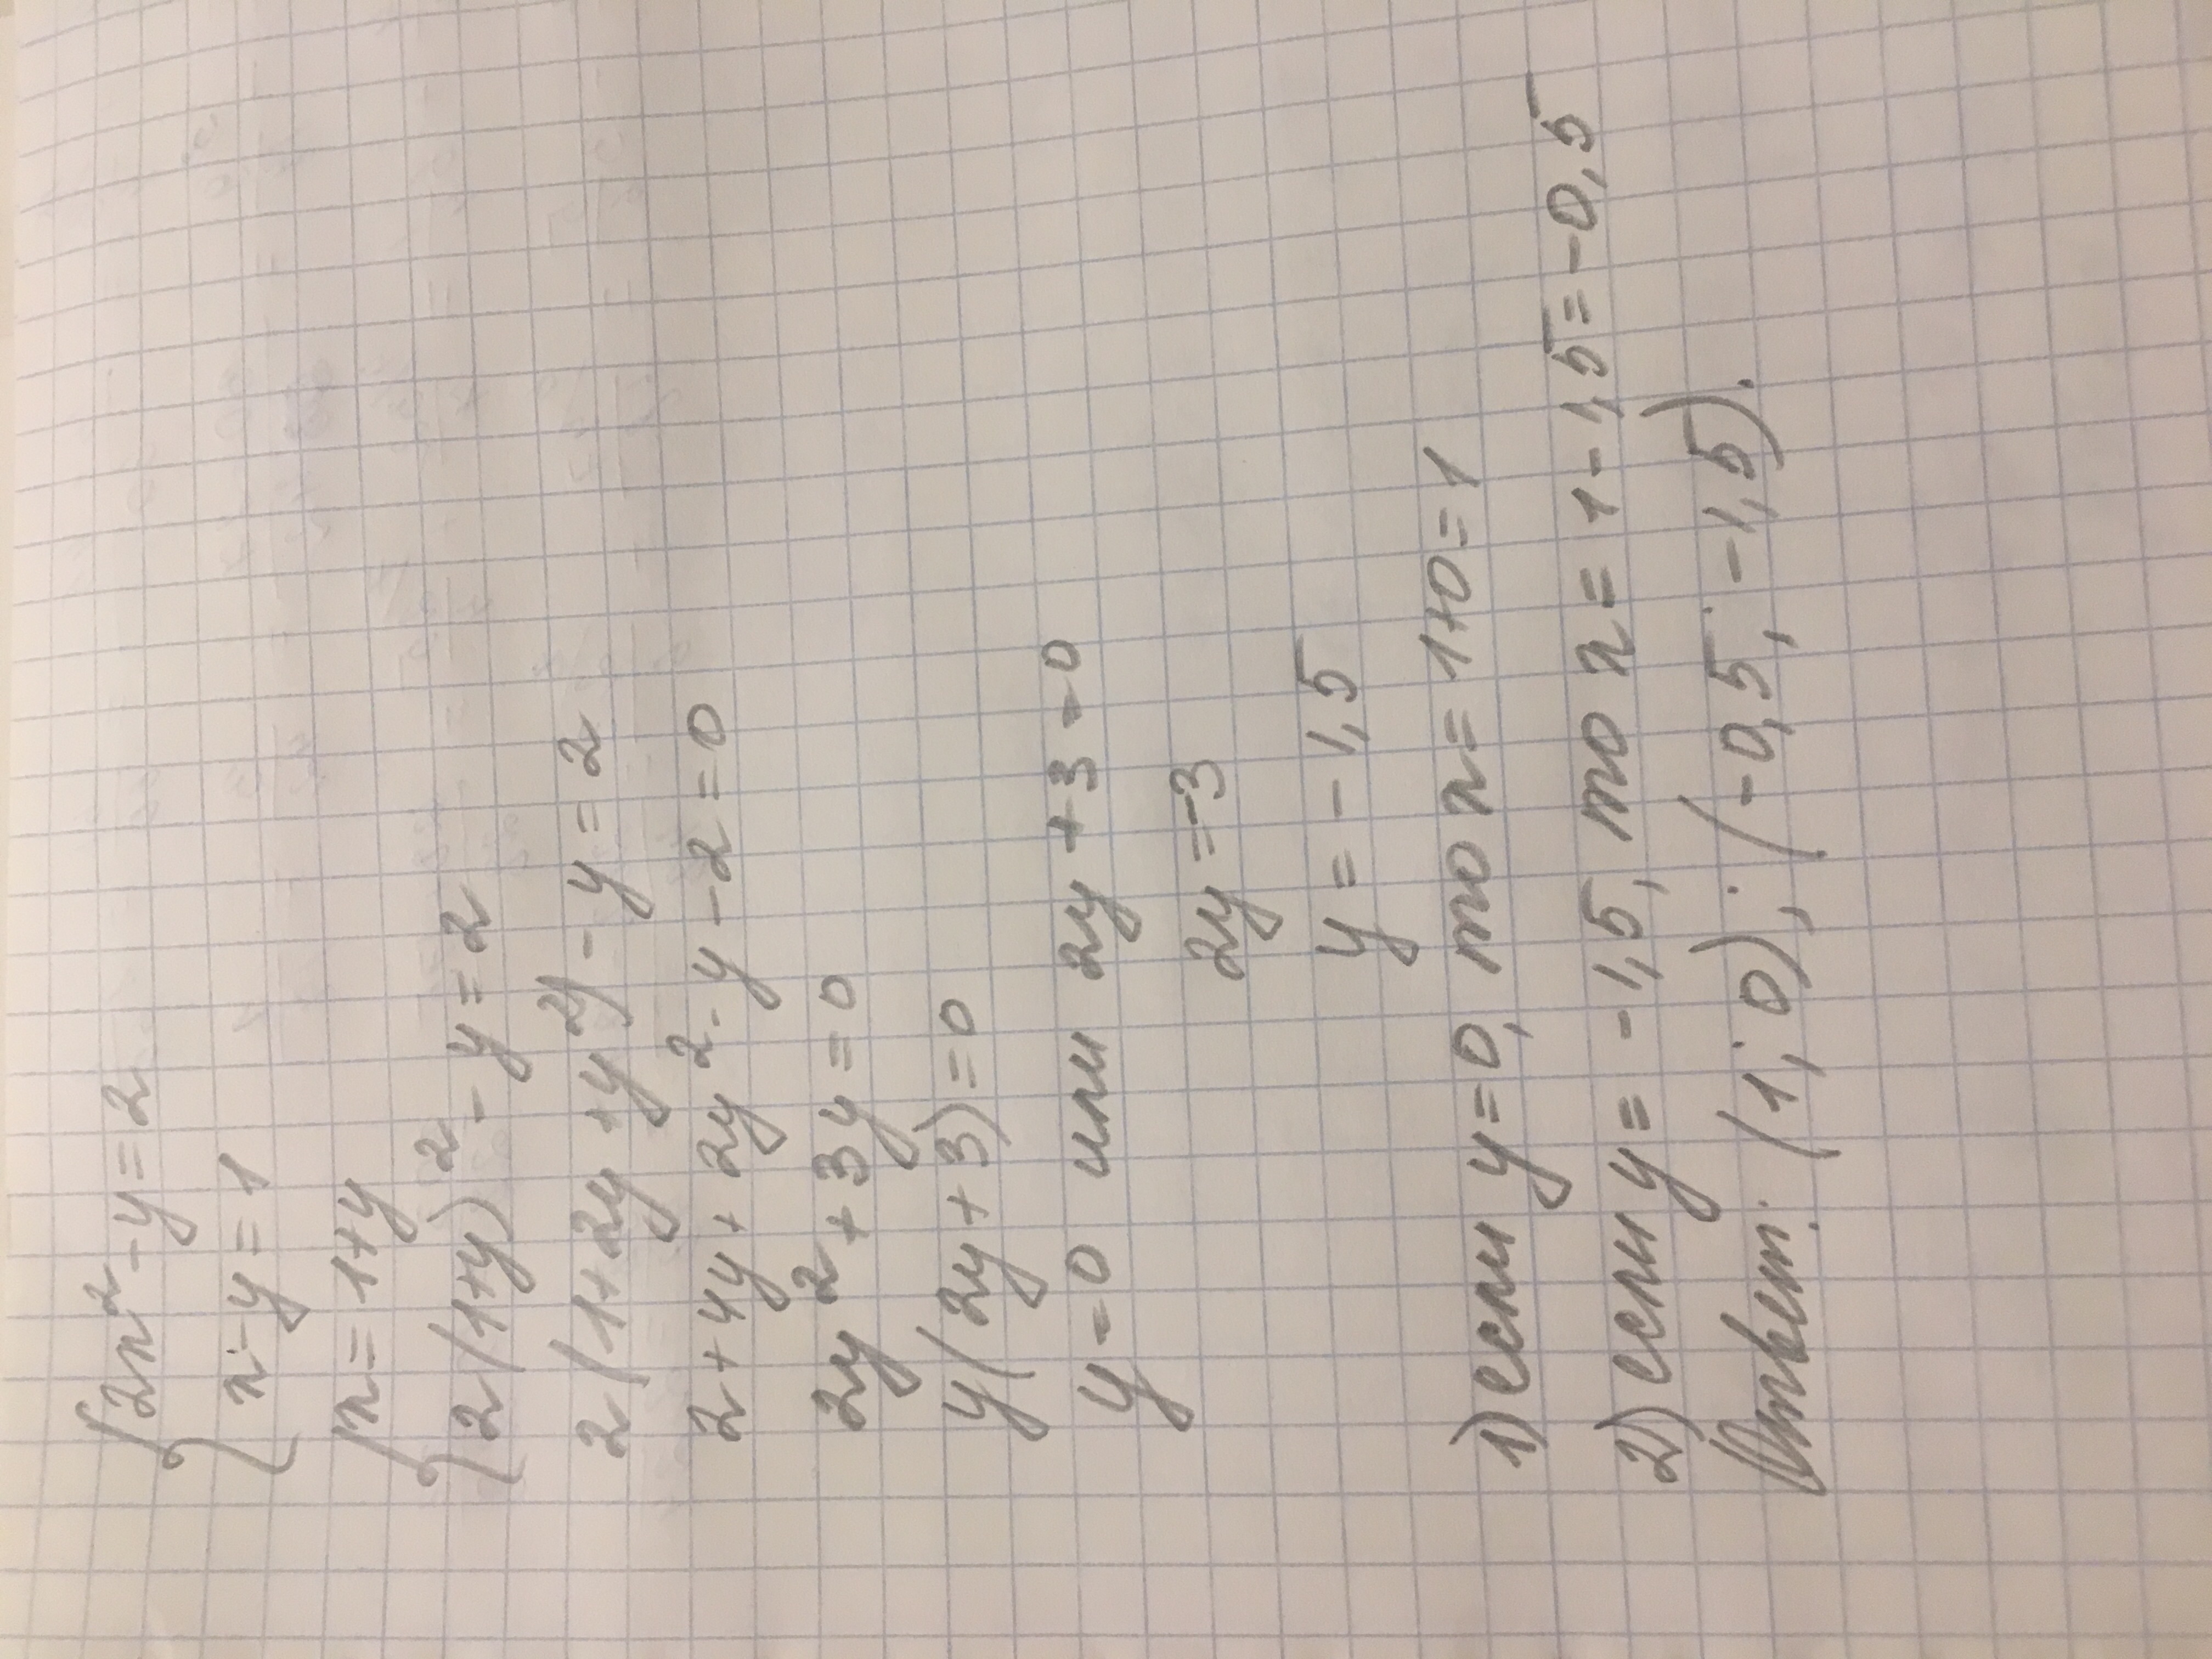 {2x² - y = 2
x - y = 1
{x = 1+y
2(1+y)² - y = 2
2(1+2y+y²) - y = 2
2+4y+2y² - y - 2 = 0
2y² + 3y = 0
y(2y+3) = 0
y = 0 или 2y + 3 = 0
2y = -3
y = -1,5
1) если y = 0, то x = 1+0 = 1
2) если y = -1,5, то x = 1 - 1,5 = -0,5
Ответ: (1; 0); (-0,5; -1,5).